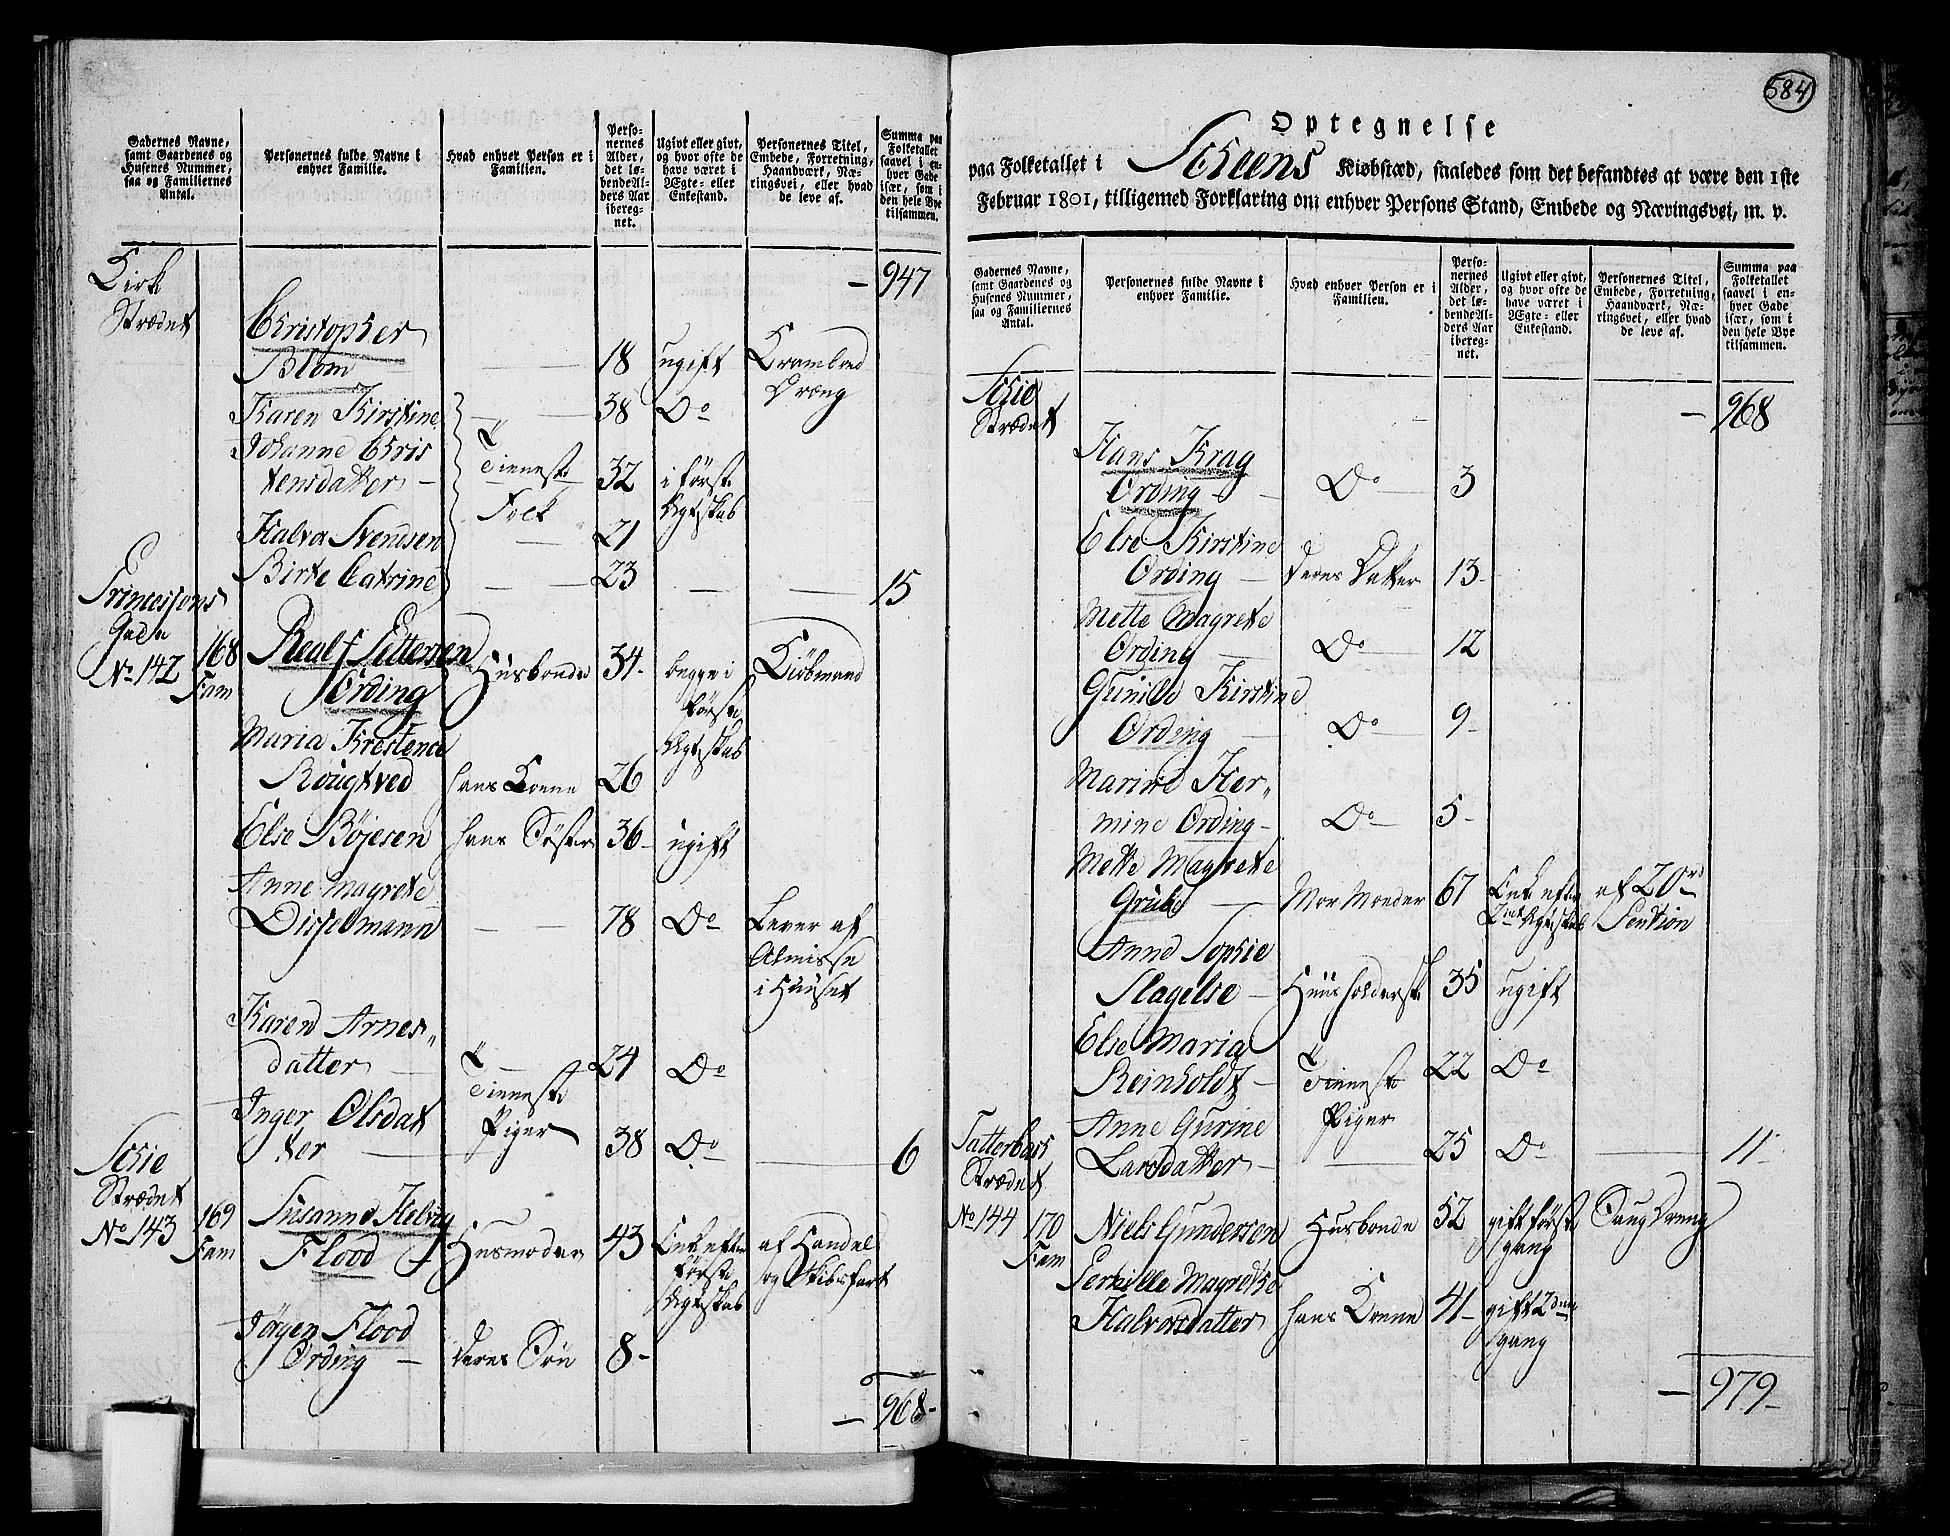 Gadernes Navne, samt Gaardenes og Husenes Nummer, saa og Familiernes Antal.
Personernes fulde Navne i enhver Familie.
Hvad enhver Person er i Familien.
Personernes Alder, det løbende Alders Aar iberegnet.
Ugivt eller givt, og hvor ofte de have været i Ægte- eller Enkestand.
Personernes Titel, Embede, Forretning, Haandværk, Næringsvei, eller hvad de leve af.
Summa paa Folketallet saavel i enhver Gade især, som i den hele Bye tilsammen.
Kirk — 947
Strædet
Christopher
Blom — 18 ugift Krambod
Dræng
Karen Kirstine — 38 Do
Johanne Chris
tensdatter — Tienneste 32 i första
Folk Ægteskab
Halvor Svendsen — 21
Birte Catrine — 23 — — 15
Princessens
Gade
No 142 168 Fam Realf Pettersen Huusbonde 34 begge i Kiöbmand
Ording förste
Ægteskab
Maria Krestence
Rougtved hans Kone 26
Else Böjesen hans Söster 36 ugift
Anne Magrete
Disselmann — 78 Do Lever af
Almisse
i Huuset
Karen Arnes-
datter — 24 Do
Tienneste
Piger
Inger Olsdat
ter — 38 Do — 6
Schie
Strædet
No 143 169 Fam Susanne Helvig
Flood Husmoder 43 Enke efter af Handel
förste og Skibsfart
Ægteskab
Jörgen Flood
Ording — deres Sön 8
— 968
584
Optegnelse
paa Folketallet i Scheens Kiøbstæd, saaledes som det befandtes at være den 1ste
Februar 1801, tilligemed Forklaring om enhver Persons Stand, Embede og Næringsvei, m. v.
Gadernes Navne, samt Gaardenes og Husenes Nummer, saa og Familiernes Antal.
Personernes fulde Navne i enhver Familie.
Hvad enhver Person er i Familien.
Personernes Alder, det løbende Alders Aar iberegnet.
Ugivt eller givt, og hvor ofte de have været i Ægte- eller Enkestand.
Personernes Titel, Embede, Forretning, Haandværk, Næringsvei, eller hvad de leve af.
Summa paa Folketallet saavel i enhver Gade især, som i den hele Bye tilsammen.
Schie — 968
Strædet
Hans Krag
Ording — Do — 3
Else Kirstine
Ording — deres Datter 13
Mette Magrete
Ording Do — 12
Gunille Kirstine
Ording — Do 9
Marine Her-
mine Ording — Do — 5
Mette Magrete
Grube — Mor Moder 67 Enke efter af 20
Ægteskab Pention
Anne Sophie
Slagelse — Huusholderske 35 ugift
Else Maria
Reinholdt — Tienneste 22 Do
Piger
Anne Gurine
Larsdatter — 25 Do — 11
Strædet
No 144 170 Fam Niels Gundersen Husbonde 52 gift förste
gang
Pernille Magrethe
Halvorsdatter hans Kone 41 gift 2den
gang
— 979